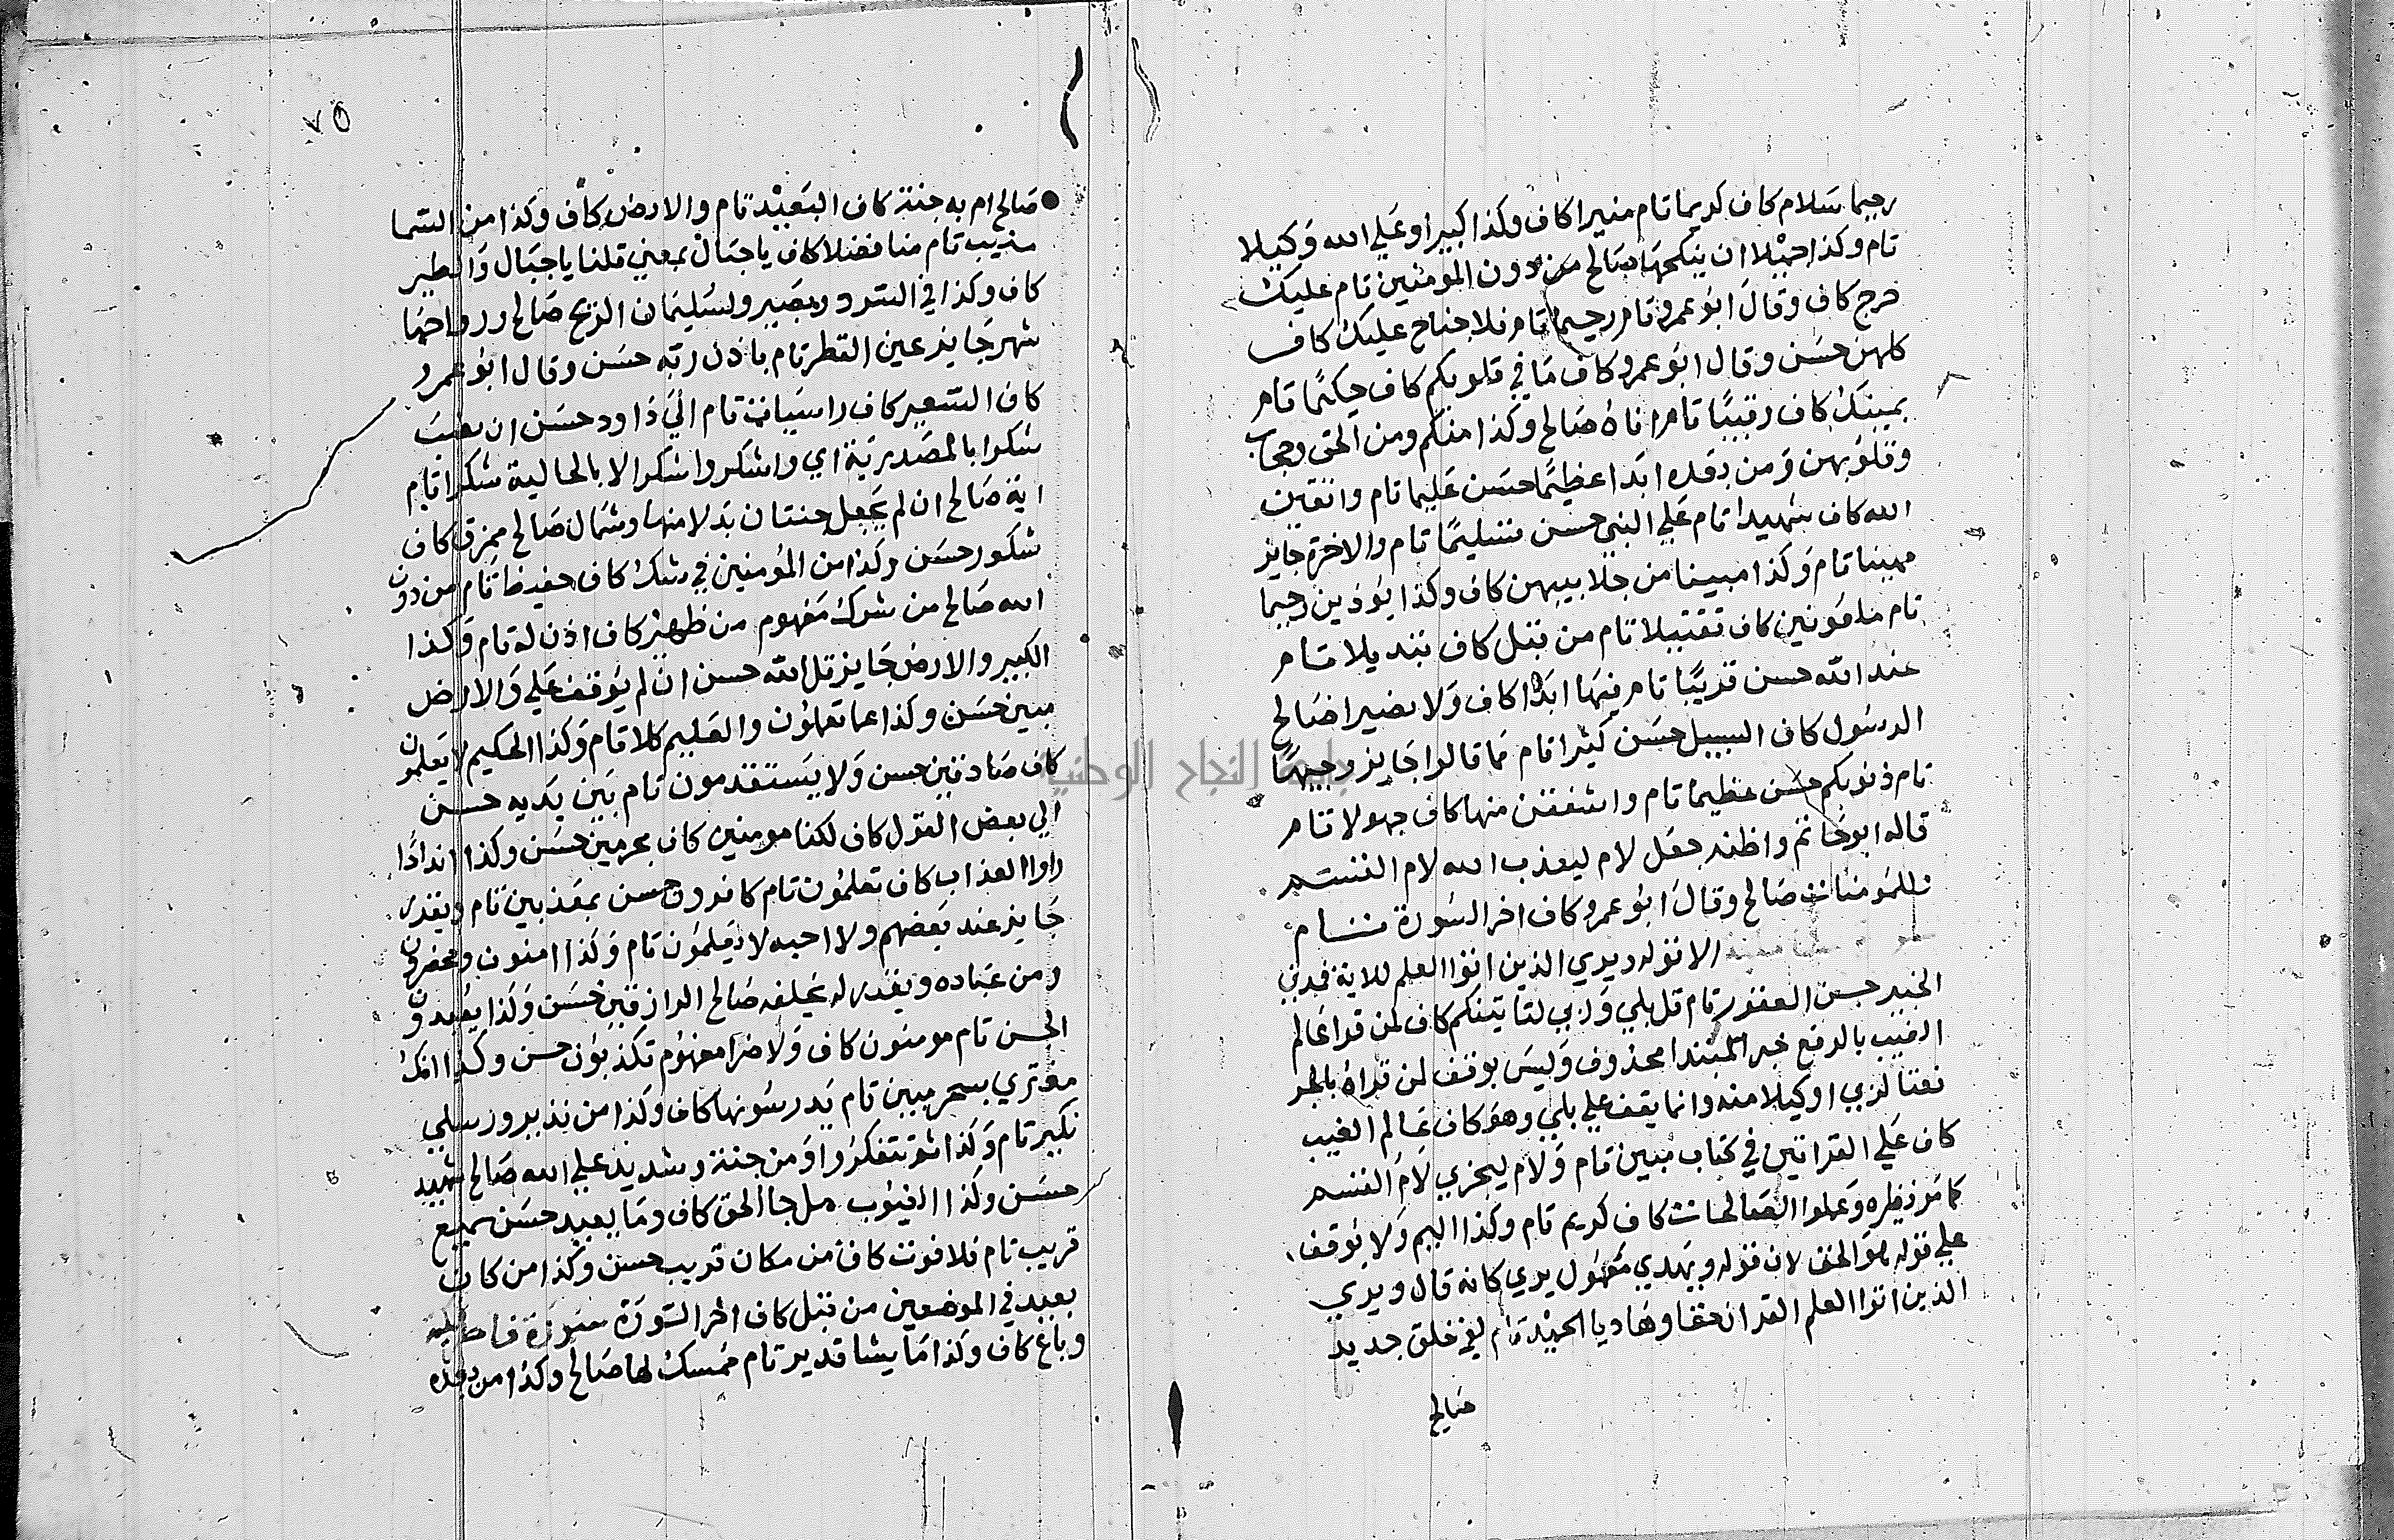 رحيما سلام كاف كريما تام منيرا كاف وكذا كبيرا وعلي الله وكيلا
تام وكذا جميلا ان ينكحها صالح من دون المومنين تام عليك
حرج كاف وقال ابو عمرو تام رحيما تام فلا جناح عليك كاف
كلهن حسن وقال ابو عمرو كاف ما في قلوبكم كاف حكيما تام
يمينك كاف رقيبا تام اناه صالح وكذا منكم ومن الحق وحجاب
وقلوبهن ومن بعده ابدا عظيما حسن عليما تام واتقين
الله كاف شهيدا تام علي النبي حسن تسليما تام والاخرة جايز
مهينا تام وكذا مبينا من جلابيبهن كاف وكذا يوذين رحيما
تام ملعونين كاف تقتيلا تام من قبل كاف تبديلا تام
عند الله حسن قريبا تام فيها ابدا كاف ولا نصيرا صالح
الرسول كاف السبيل حسن كثيرا تام مما قالوا جايز وجيها
تام ذنوبكم حسن عظيما تام واشفقن منها كاف جهولا تام
قاله ابو حاتم واظنه جعل لام ليعذب الله لام القسم
للمومنات صالح وقال ابو عمرو كاف اخر السورة تام
الا قوله ويري الذين اتوا العلم للاية فمدني
الخبير حسن الغفور تام قل بلي وربي لتاتينكم كاف لمن قرا عالم
الغيب بالرفع خبر المبتدا محذوف وليس بوقف لمن قراه بالجر
نعتا لربي او كيلا منه وانما يقف علي بلي وهو كاف عالم الغيب
كاف علي القراتين في كتاب مبين تام ولام ليجزي لام القسم
كما مر نظيره وعملوا الصالحات كاف كريم تام وكذا اليم ولا يوقف
علي قوله هو الحق لان قوله ويهدي معمول يري كانه قال ويري
الذين اتوا العلم القران حقا وهاديا الحميد تام لفي خلق جديد
صالح
٧٥
صالح ام به جنة كاف البعيد تام والارض كاف وكذا من السما
منيب تام منا فضلا كاف يا جبال بمعني قلنا يا جبال والطير
كاف وكذا في السرد وبصير ولسليمان الريح صالح ورواحها
شهر جايز عين القطر تام باذن ربه حسن وقال ابو عمرو
كاف السعير كاف راسيات تام ال داود حسن ان نصب
شكرا بالمصدرية اي واشكروا شكرا لا بالحالية شكرا تام
اية صالح ان لم يجعل جنتان بدلا منها وشمال صالح ممزق كاف
شكور حسن وكذا من المومنين في شك كاف حفيظ تام من دون
الله صالح من شرك مفهوم من ظهير كاف اذن له تام وكذا
الكبير والارض جايز قل الله حسن ان لم يوقف علي والارض
مبين حسن وكذا عما تعملون والعليم كلا تام وكذا الحكيم لا يعلمون
كاف صادقين حسن ولا يستقدمون تام بين يديه حسن
الي بعض القول كاف لكنا مومنين كاف مجرمين حسن وكذا اندادا
راوا العذاب كاف تعلمون تام كافرون حسن بمعذبين تام ويقدر
جايز عند بعضهم ولا احبه لا يعلمون تام وكذا امنون ومحضرون
ومن عباده ويقدر له يخلفه صالح الرازقين حسن وكذا يعبدون
الجن تام مومنون كاف ولا ضرا مفهوم تكذبون حسن وكذا افك
مفتري بسحر مبين تام يدرسونها كاف وكذا من نذير ورسلي
نكير تام وكذا ثم تتفكروا ومن جنة وشديد علي الله صالح شهيد
حسن وكذا الغيوب قل جا الحق كاف وما يعيد حسن سميع
قريب تام فلا فوت كاف من مكان قريب حسن وكذا من كان
بعيد في الموضعين من قبل كاف اخر السورة سورة فاطر
وباع كاف وكذا ما يشا قدير تام ممسك لها صالح وكذا من بعده
جامعة النجاح الوطنية